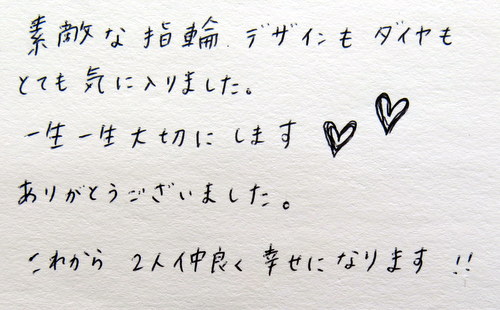 素敵な指輪、デザインもダイヤも
とても気に入りました。
一生一生大切にします
ありがとうございました。
これから 2人仲良く幸せになります!!